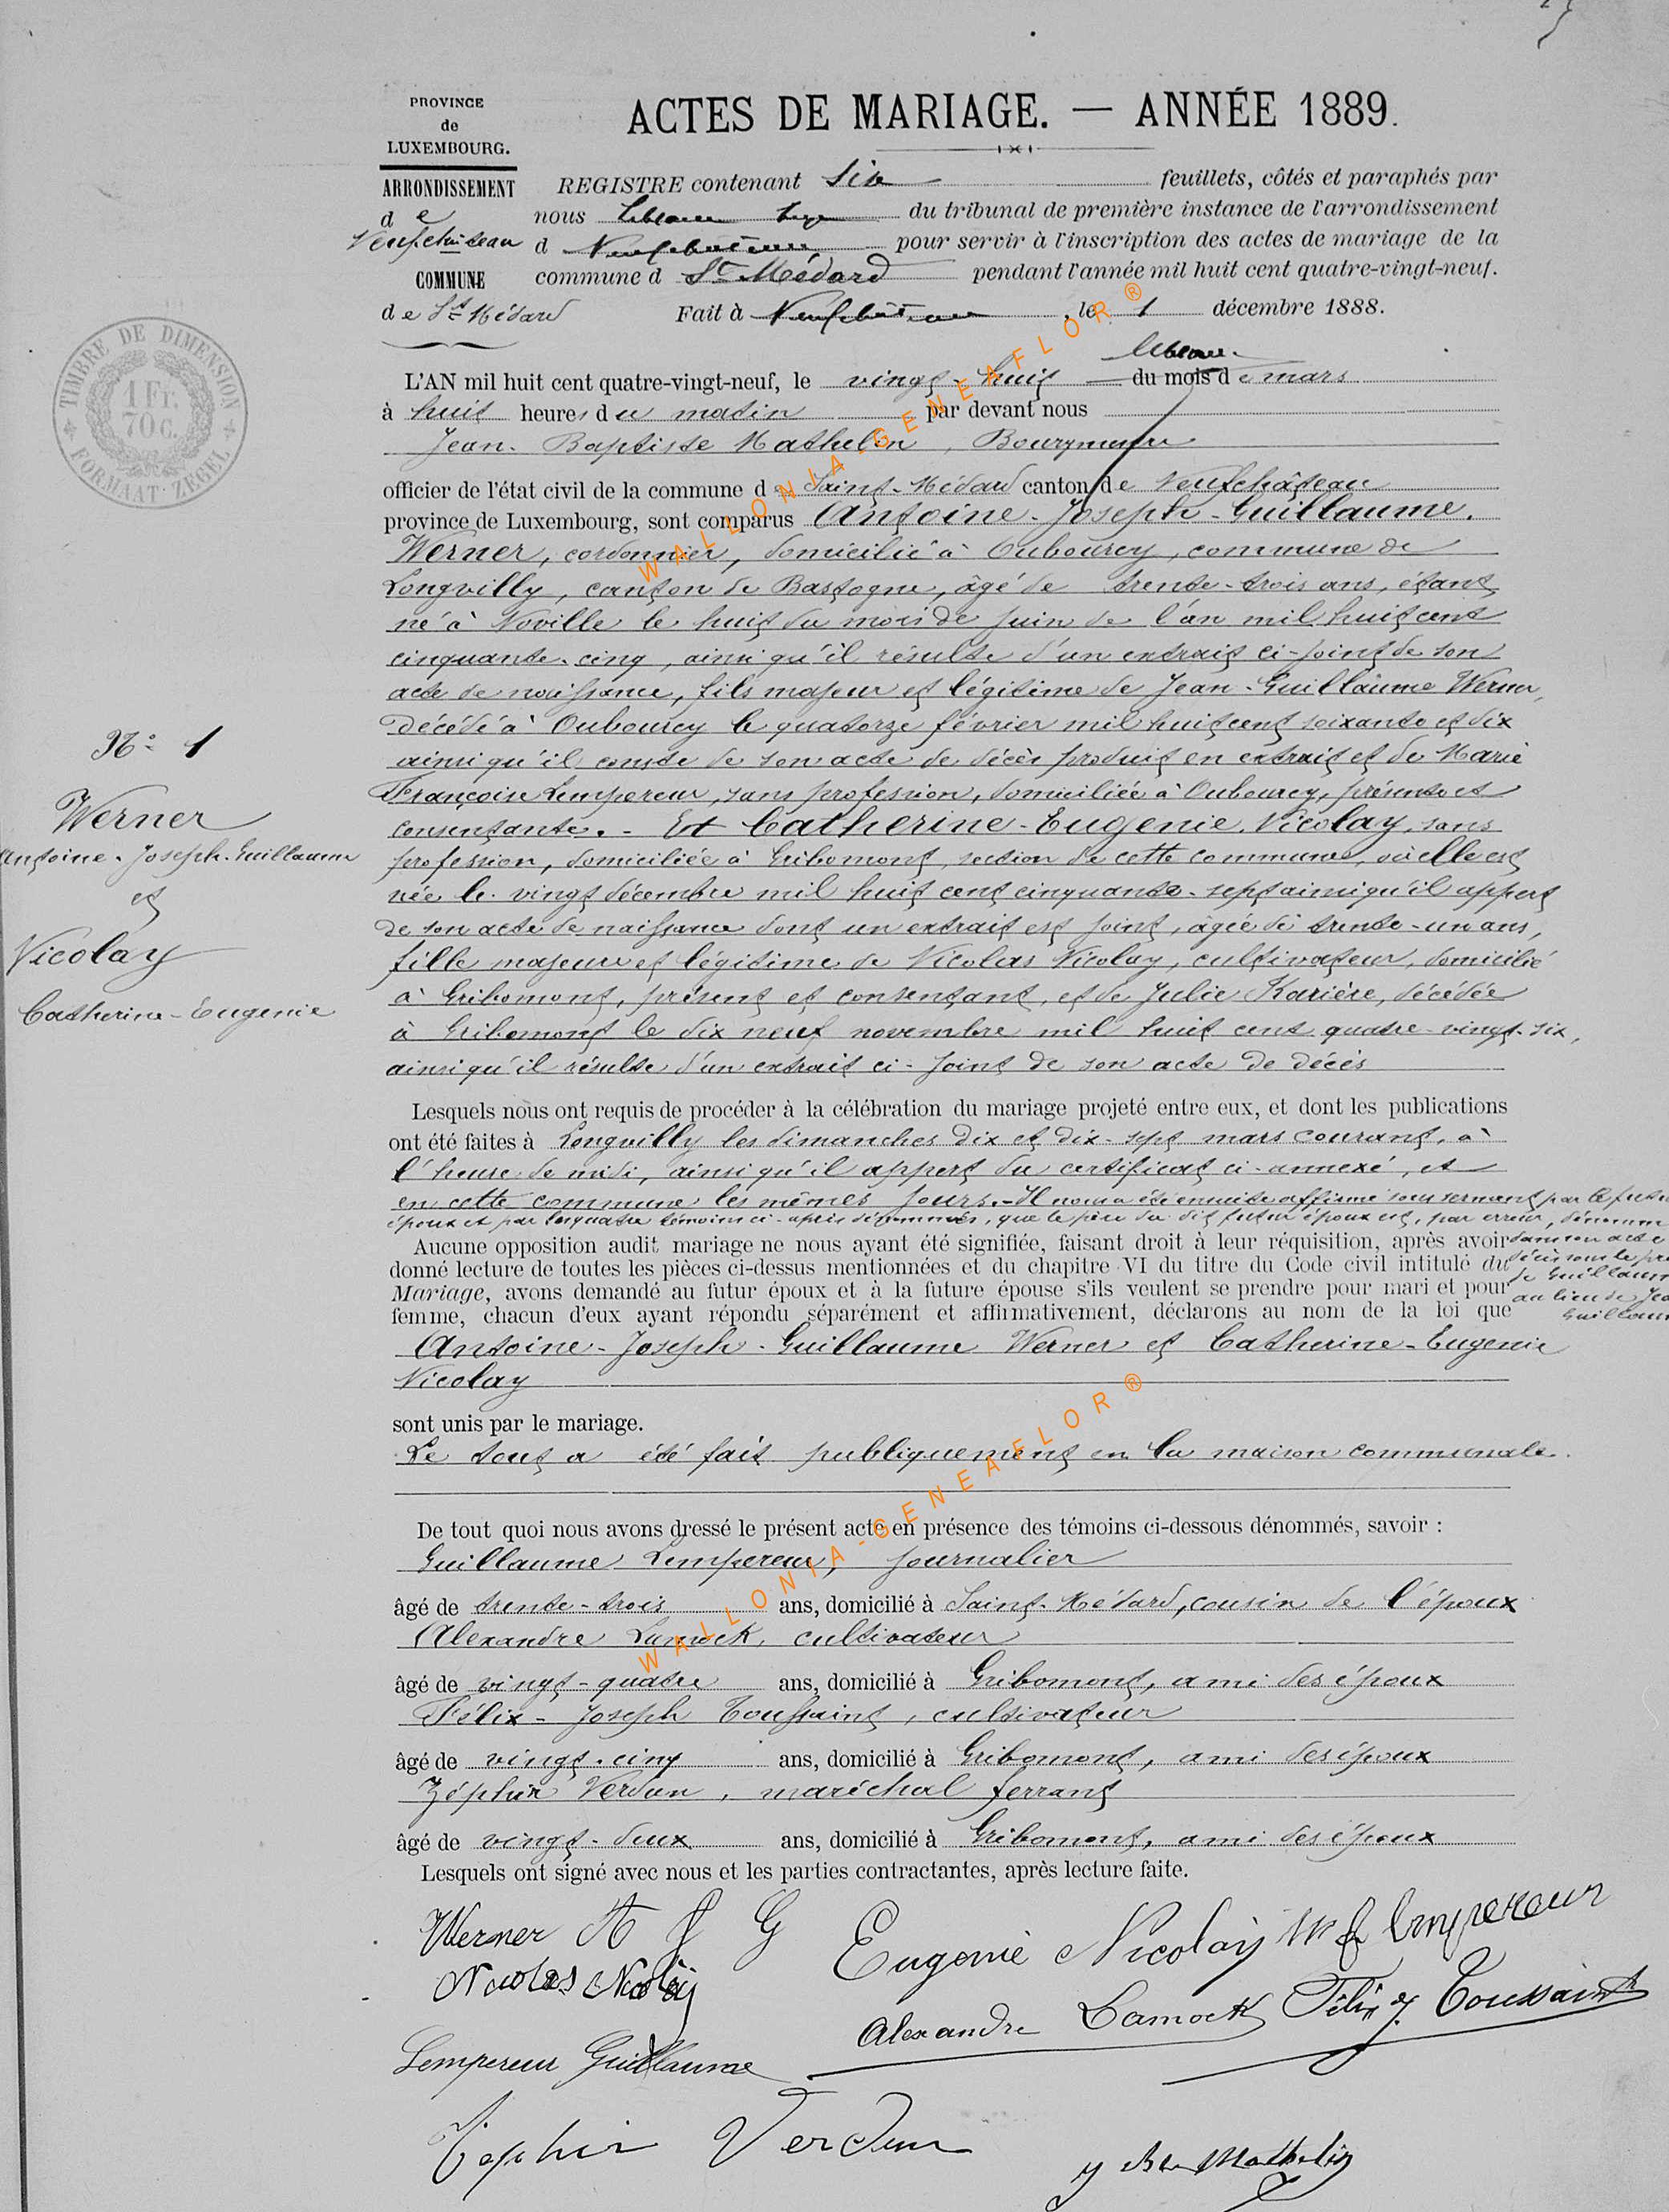 PROVINCE
de
LUXEMBOURG.
ARRONDISSEMENT
de
Neufchâteau
COMMUNE
de St Médard
TIMBRE DE DIMENSION
1 Fr.
70 c.
FORMAAT-ZEGEL
ACTES DE MARIAGE. — ANNÉE 1889.
REGISTRE contenant six feuillets, côtés et paraphés par
nous du tribunal de première instance de l'arrondissement
d Neufchâteau pour servir à l'inscription des actes de mariage de la
commune d St Médard pendant l'année mil huit cent quatre-vingt-neuf.
Fait à Neufchâteau, le 1 décembre 1888.
L'AN mil huit cent quatre-vingt-neuf, le vingt-huit du mois de mars
à huit heures du matin par devant nous
Jean-Baptiste Mathelin, Bourgmestre
officier de l'état civil de la commune de Saint-Médard canton de Neufchâteau
province de Luxembourg, sont comparus Antoine-Joseph-Guillaume
Werner, cordonnier, domicilié à Oubourcy, commune de
Longvilly, canton de Bastogne, âgé de trente-trois ans, étant
né à Noville le huit du mois de juin de l'an mil huit cent
cinquante-cinq, ainsi qu'il résulte d'un extrait ci-joint de son
acte de naissance, fils majeur et légitime de Jean-Guillaume Werner,
décédé à Oubourcy le quatorze février mil huit cent soixante et dix
ainsi qu'il conste de son acte de décès produit en extrait et de Marie
Françoise Lempereur, sans profession, domiciliée à Oubourcy, présente et
consentante. - Et Catherine-Eugenie Nicolay, sans
profession, domiciliée à Gribomont, section de cette commune, où elle est
née le vingt décembre mil huit cent cinquante-sept ainsi qu'il appert
de son acte de naissance dont un extrait est joint, âgée de trente-un ans,
fille majeure et légitime de Nicolas Nicolay, cultivateur, domicilié
à Gribomont, présent et consentant, et de Julie Karière, décédée
à Gribomont le dix neuf novembre mil huit cent quatre-vingt-six,
ainsi qu'il résulte d'un extrait ci-joint de son acte de décès
No 1
Werner
Antoine-Joseph-Guillaume
et
Nicolay
Catherine-Eugenie
Lesquels nous ont requis de procéder à la célébration du mariage projeté entre eux, et dont les publications
ont été faites à Longvilly les dimanches dix et dix-sept mars courant, à
l'heure de midi, ainsi qu'il appert du certificat ci-annexé, et
en cette commune les mêmes jours. - Il nous a été ensuite affirmé sous serment par le futur
époux et par les quatre témoins ci-après dénommés, que le père du dit futur époux est, par erreur, dénommé
dans son acte
décès sous le pré
de Guillaum
au lieu de Jea
Guillaum
Aucune opposition audit mariage ne nous ayant été signifiée, faisant droit à leur réquisition, après avoir
donné lecture de toutes les pièces ci-dessus mentionnées et du chapitre VI du titre du Code civil intitulé du
Mariage, avons demandé au futur époux et à la future épouse s'ils veulent se prendre pour mari et pour
femme, chacun d'eux ayant répondu séparément et affirmativement, déclarons au nom de la loi que
Antoine-Joseph-Guillaume Werner et Catherine-Eugenie
Nicolay
sont unis par le mariage.
Le tout a été fait publiquement en la maison communale.
De tout quoi nous avons dressé le présent acte en présence des témoins ci-dessous dénommés, savoir :
Guillaume Lempereur, journalier
âgé de trente-trois ans, domicilié à Saint-Médard, cousin de l'époux
Alexandre Lamock, cultivateur
âgé de vingt-quatre ans, domicilié à Gribomont, ami des époux
Félix-Joseph Toussaint, cultivateur
âgé de vingt-cinq ans, domicilié à Gribomont, ami des époux
Zéphir Verdun, maréchal ferrant
âgé de vingt-deux ans, domicilié à Gribomont, ami des époux
Lesquels ont signé avec nous et les parties contractantes, après lecture faite.
Werner A J G
Eugenie Nicolay
M f Lempereur
Nicolas Nicolay
Alexandre Lamock
Félix J. Toussaint
Lempereur Guillaume
Zephir Verdun
J Bte Mathelin
WALLONIA-GENEAFLOR ®
WALLONIA-GENEAFLOR ®